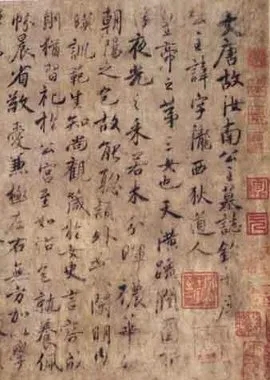 大唐故汝南公主墓誌銘并序
公主諱字隴西狄道人
皇帝之第三女也天潢疏潤圓折
浮夜光之采若木分暉穠華
朝陽之色故能聰穎外發閑明內
映訓範生知尚觀箴於女史言容成
則猶習禮於公宮至如怡色就養佩
晨省敬愛兼極左右無方加以學